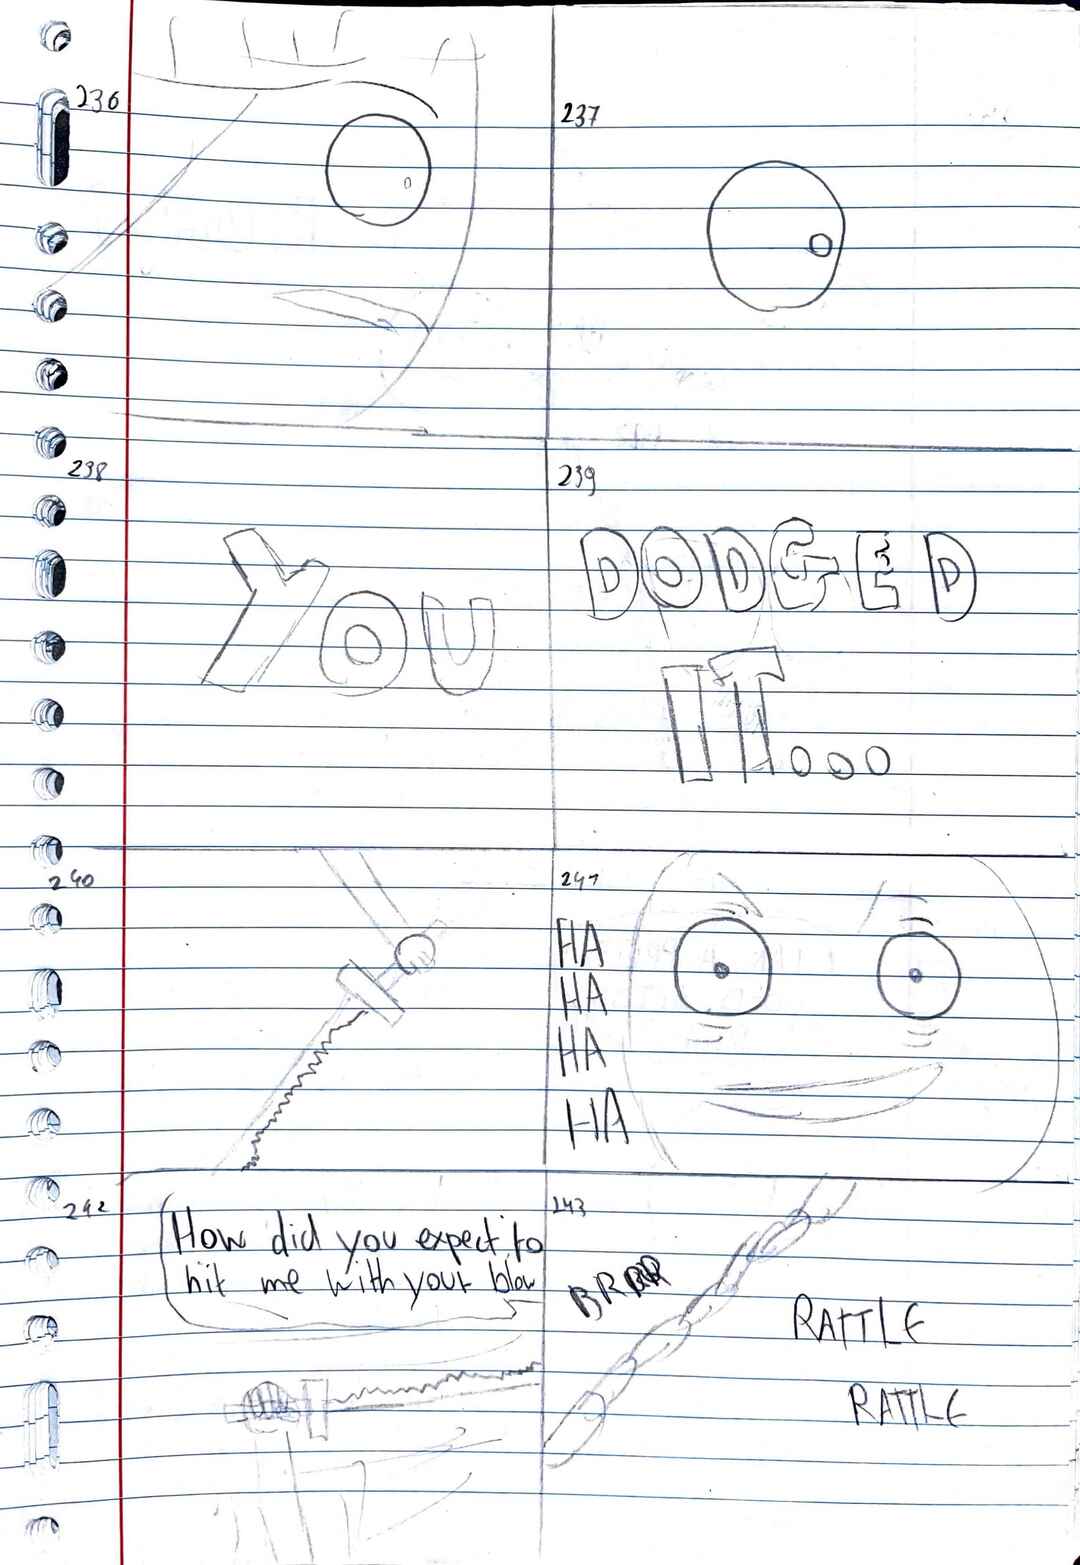 236
237
238
YOU
239
DODGED
IT...
240
241
HA
HA
HA
HA
242
How did you expect to
hit me with your blow
243
BRRRR
RATTLE
RATTLE